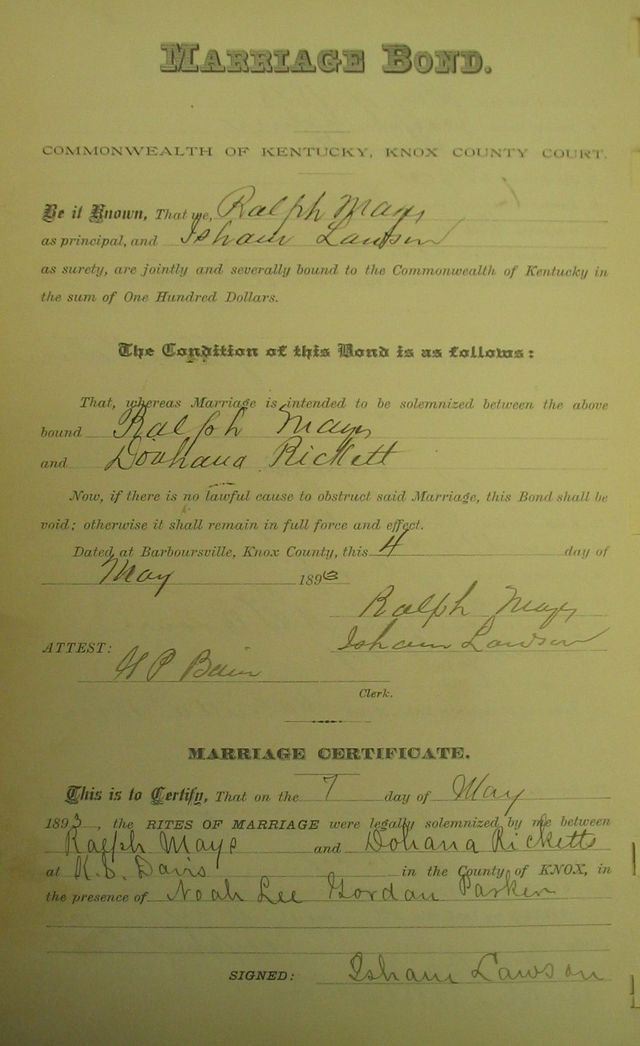 MARRIAGE BOND.
COMMONWEALTH OF KENTUCKY, KNOX COUNTY COURT.
Be it Known, That we, Ralph Mays
as principal, and Isham Lawson
as surety, are jointly and severally bound to the Commonwealth of Kentucky in
the sum of One Hundred Dollars.
The Condition of this Bond is as follows:
That, whereas Marriage is intended to be solemnized between the above
bound Ralph Mays
and Dovhana Rickett
Now, if there is no lawful cause to obstruct said Marriage, this Bond shall be
void; otherwise it shall remain in full force and effect.
Dated at Barboursville, Knox County, this 4 day of
May 1893
Ralph Mays
ATTEST: Isham Lawson
Clerk.
MARRIAGE CERTIFICATE.
This is to Certify, That on the 7 day of May
1893, the RITES OF MARRIAGE were legally solemnized by me between
Ralph Mays and Dohana Ricketts
at K.D. Davis in the County of KNOX, in
the presence of Noah Lee Gordan Parker
SIGNED: Isham Lawson